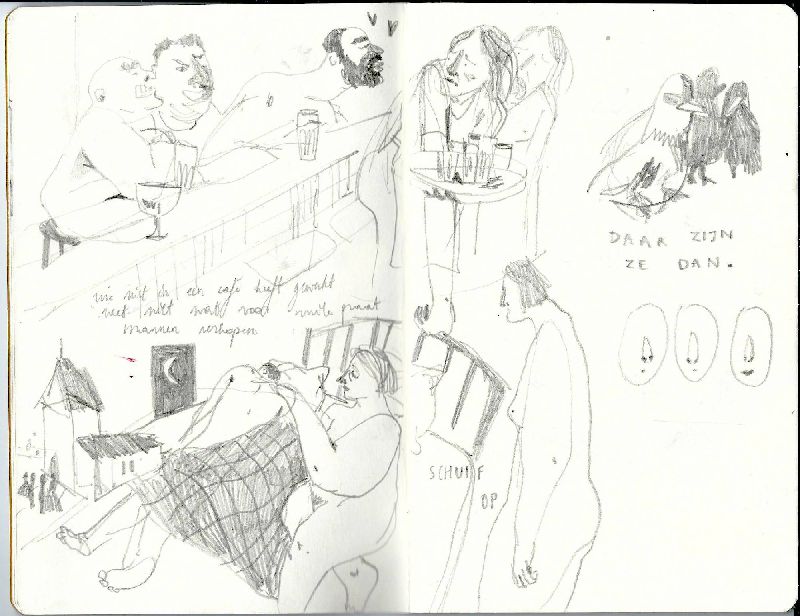 wie niet in een café heeft gewerkt
weet niet wat voor vuile praat
mannen verkopen
DAAR ZIJN
ZE DAN.
SCHUIF
OP